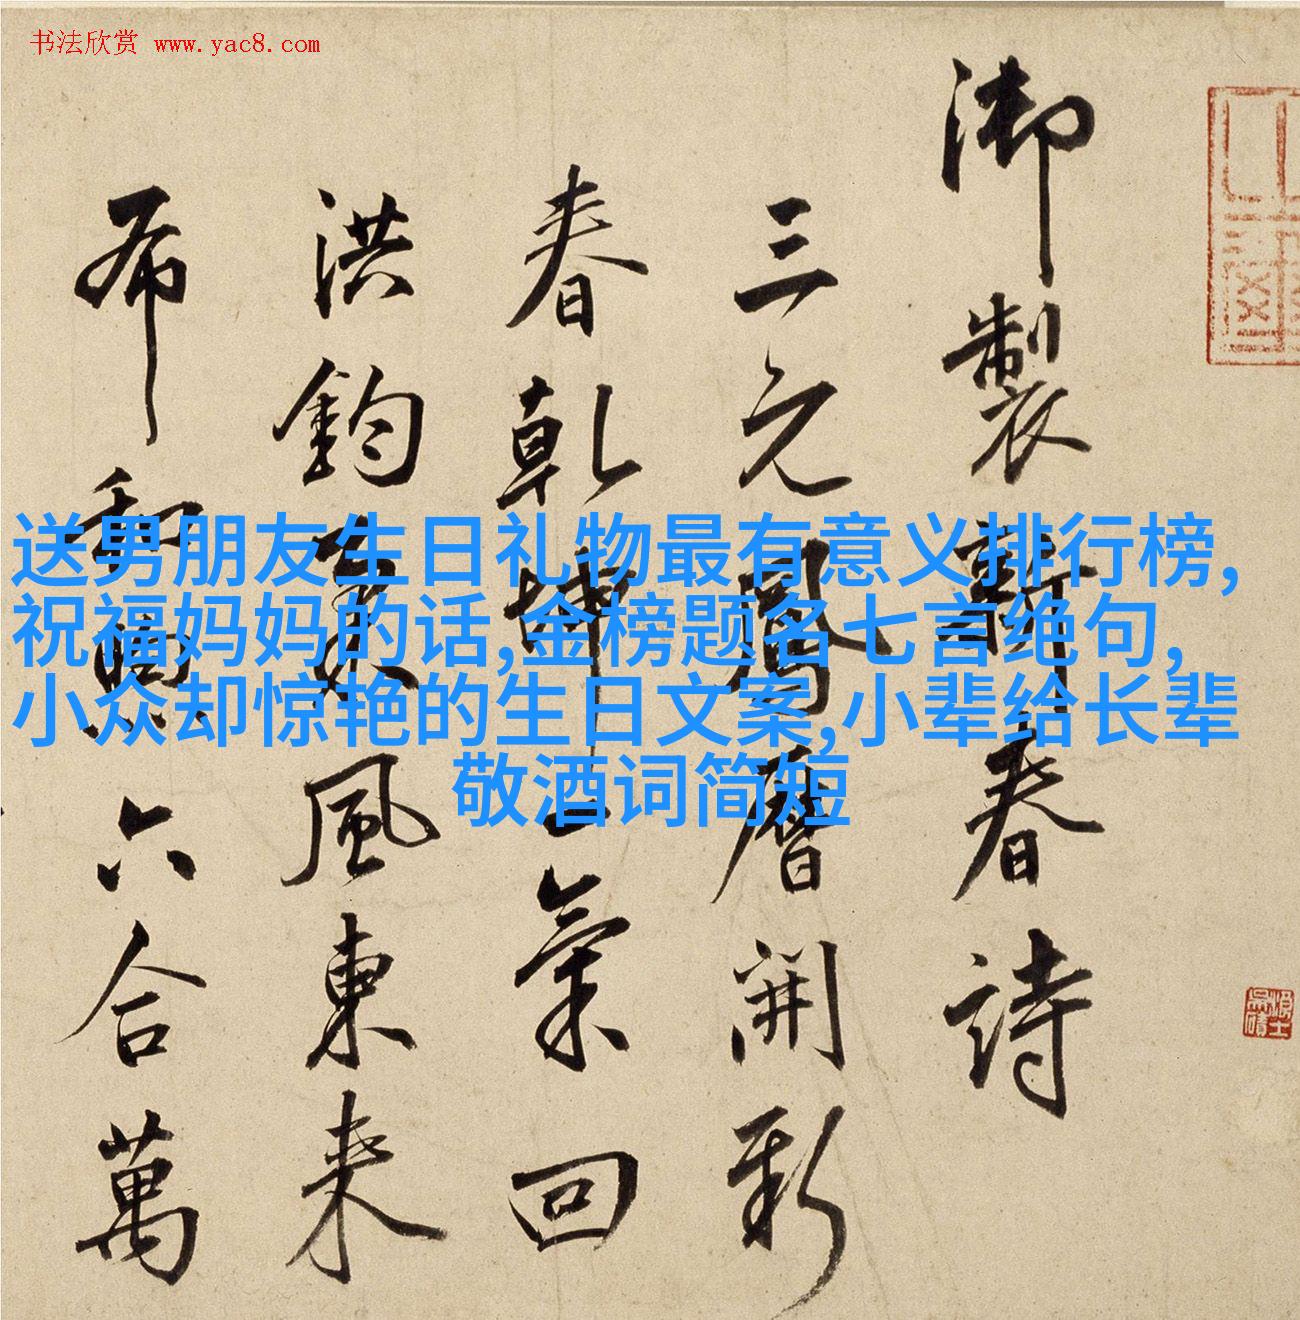 书法欣赏 www.yac8.com
御製新春詩
三元鳳曆開新
春乾坤一氣回
洪鈞氣風東来
布和興六合萬
送男朋友生日礼物最有意义排行榜,
祝福妈妈的话,金榜题名七言绝句,
小众却惊艳的生日文案,小辈给长辈
敬酒词简短